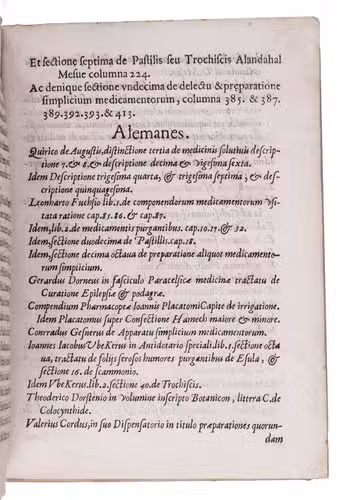 Et sectione septima de Pastilis seu Trochiscis Alandahal
Mesue columna 224.
Ac denique sectione vndecima de delectu & preparatione
simplicium medicamentorum, columna 385. & 387.
389.392.393.& 413.
Alemanes.
Quirico de Augustis, distinctione tertia de medicinis solutiuis descrip-
tione 7.& 8.& descriptione decima & vigesima sexta.
Idem Descriptione trigesima quarta, & trigesima septima, & des-
criptione quinquagesima.
Leonharto Fuchsio lib.1.de componendorum medicamentorum vsi-
tata ratione cap.85.86.& cap.87.
Idem, lib.2.de medicamentis purgantibus. cap.10.17.& 32.
Idem, sectione duodecima de Pastillis.cap.18.
Idem, sectione decima octaua de preparatione aliquot medicamento-
rum simplicium.
Gerardus Dorneus in fasciculo Paracelsicæ medicinæ tractatu de
Curatione Epilepsiæ & podagræ.
Compendium Pharmacopeæ Ioannis Placatomi Capite de irrigatione.
Idem Placatomus super Confectione Hamech maiore & minore.
Conradus Gesnerus de Apparatu simplicium medicamentorum.
Ioannes Iacobus VbeKerus in Antidotario speciali.lib.1.sectione octa
ua, tractatu de folijs serosos humores purgantibus de Esula, &
sectione 16. de scammonio.
Idem VbeKerus.lib.2.sectione 40.de Trochiscis.
Theodorico Dorstenio in volumine inscripto Botanicon, littera C.de
Colocynthide.
Valerius Cordus, in suo Dispensatorio in titulo præparationes quorun-
dam